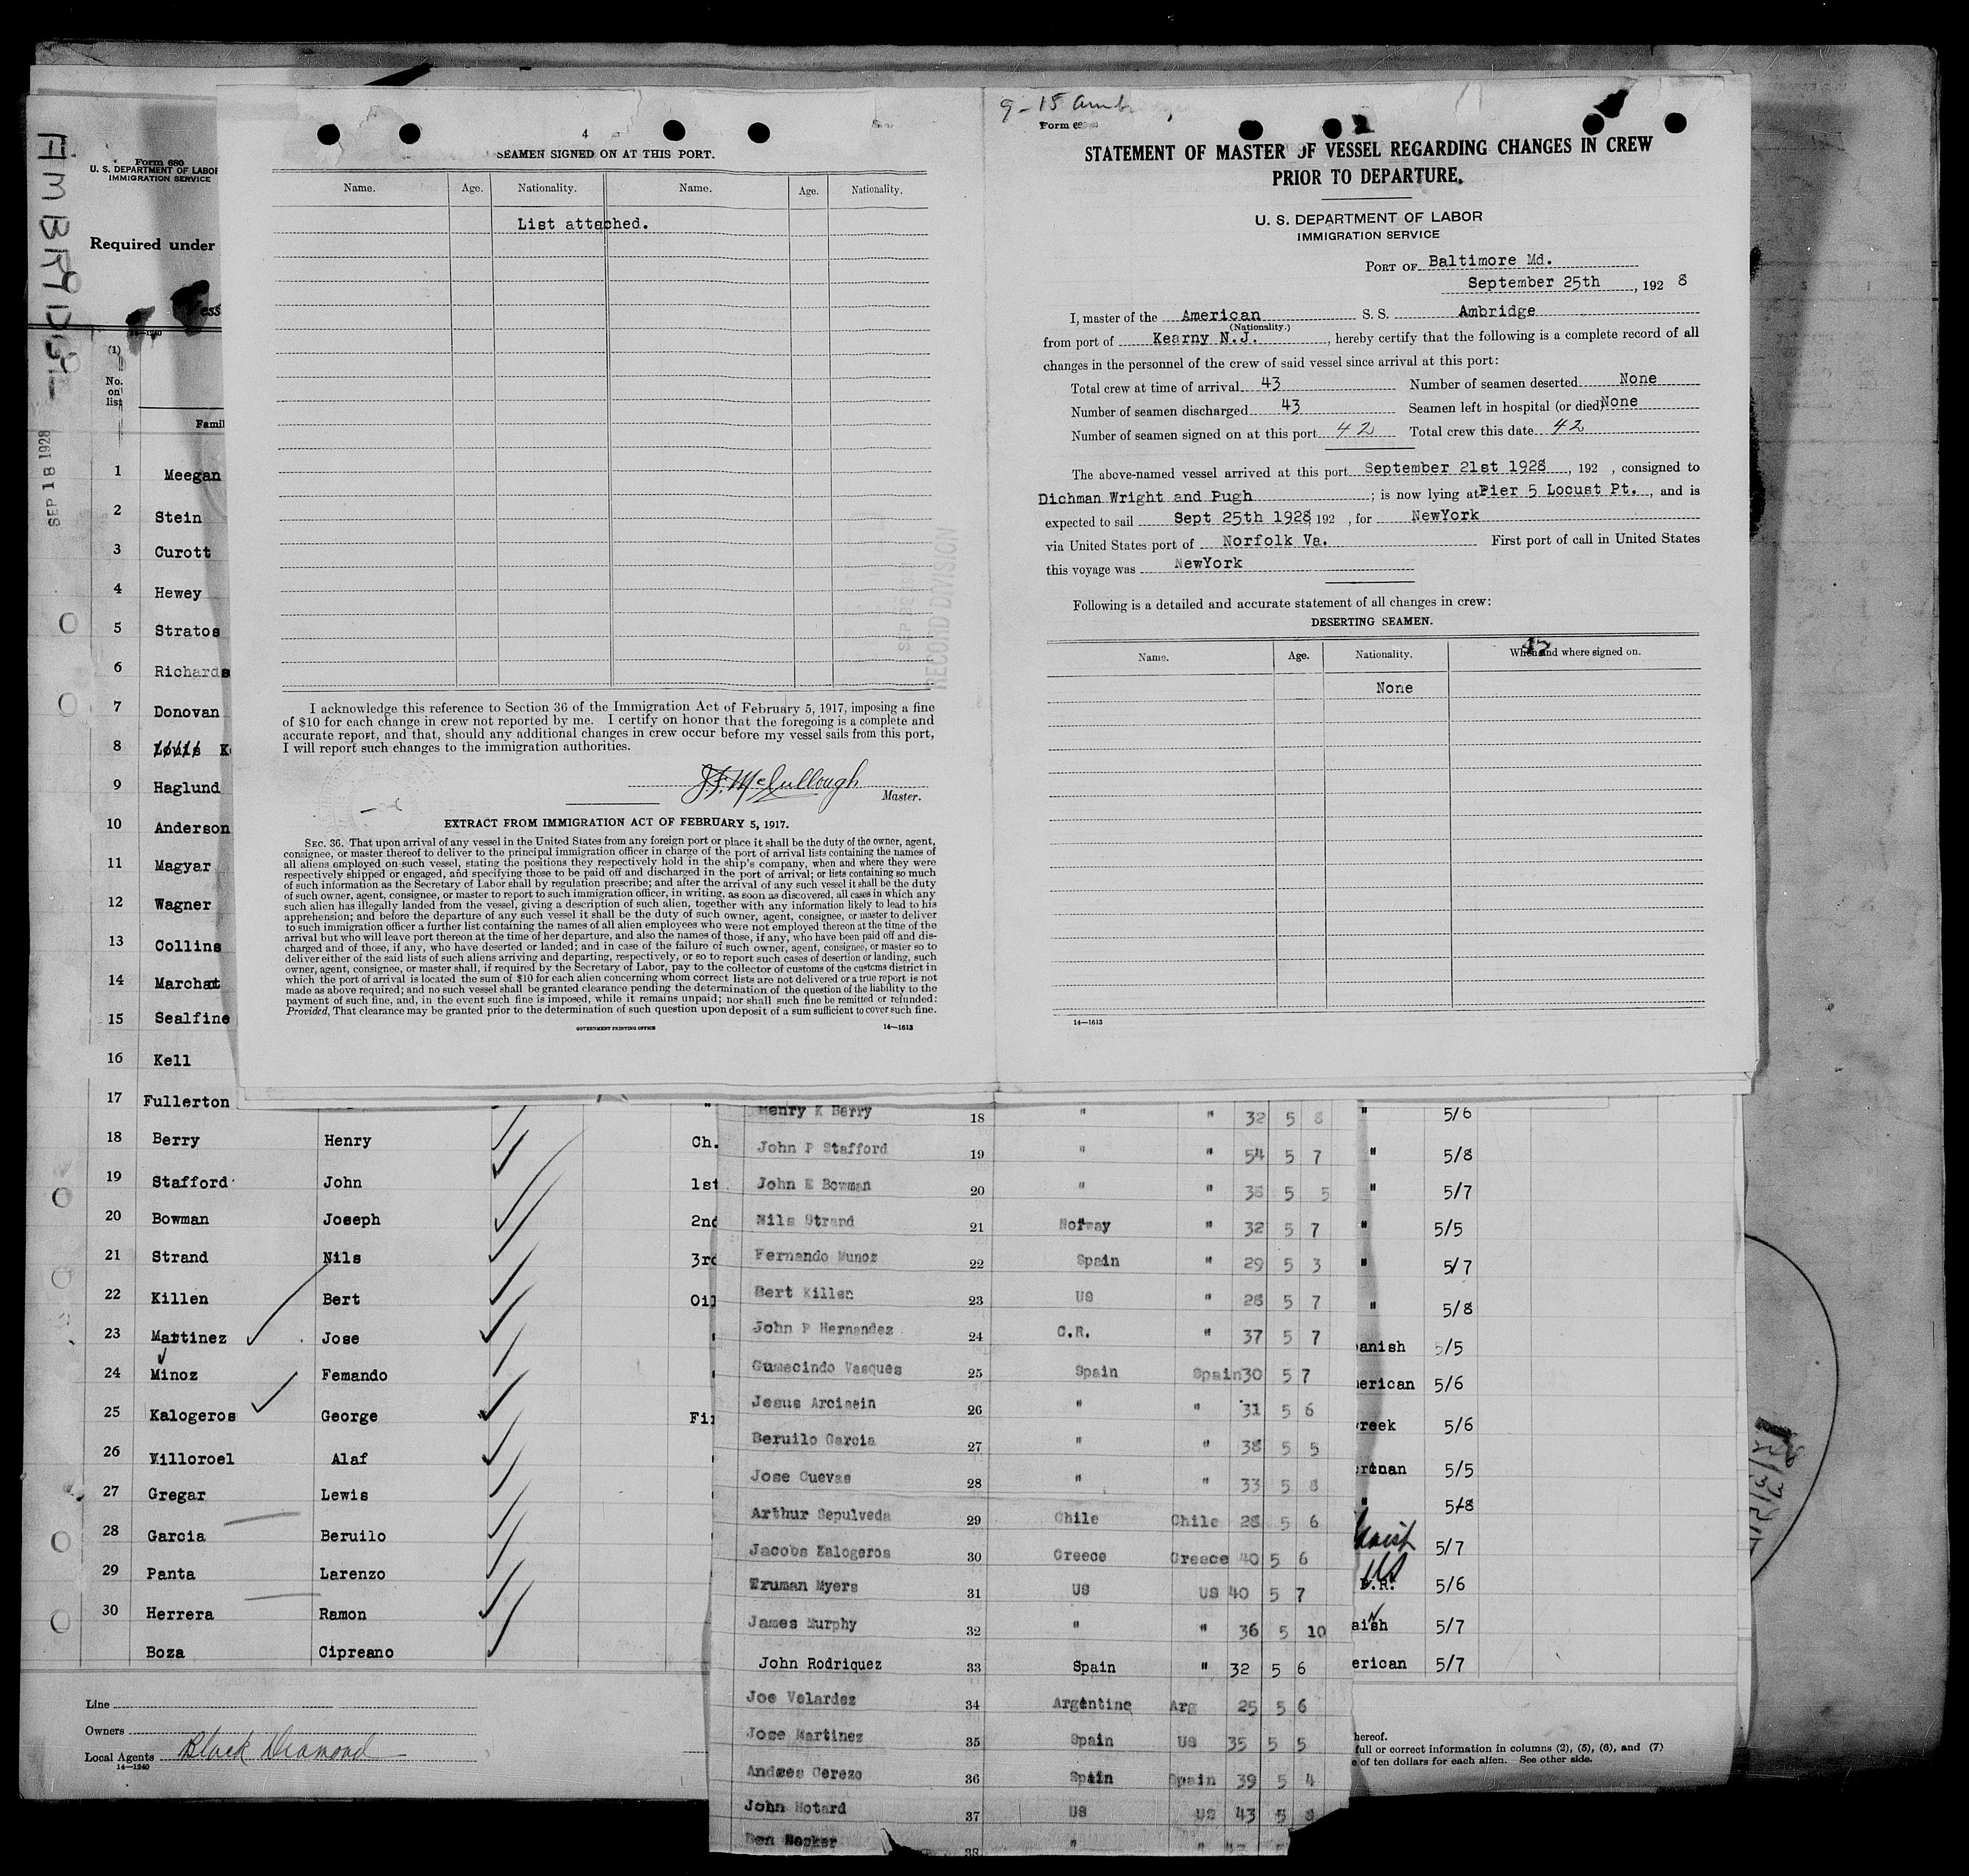 AMBRIDGE
SEP 18 1928
Form 680
U. S. DEPARTMENT OF LABOR
IMMIGRATION SERVICE
Required under
(1)
No. on list
1 Meegan
2 Stein
3 Curott
4 Hewey
5 Stratos
6 Richards
7 Donovan
8 Louis
9 Haglund
10 Anderson
11 Magyar
12 Wagner
13 Collins
14 Marchat
15 Sealfine
16 Kell
17 Fullerton
18 Berry Henry Ch.
19 Stafford John 1st
20 Bowman Joseph 2nd
21 Strand Nils 3rd
22 Killen Bert
23 Martinez Jose
24 Minoz Femando
25 Kalogeros George
26 Villoroel Alaf
27 Gregar Lewis
28 Garcia Beruilo
29 Panta Larenzo
30 Herrera Ramon
Boza Cipreano
Line
Owners
Local Agents Black Diamond
14—1240
4
SEAMEN SIGNED ON AT THIS PORT.
Name. Age. Nationality. Name. Age. Nationality.
List attached.
RECORD DIVISION
I acknowledge this reference to Section 36 of the Immigration Act of February 5, 1917, imposing a fine
of $10 for each change in crew not reported by me. I certify on honor that the foregoing is a complete and
accurate report, and that, should any additional changes in crew occur before my vessel sails from this port,
I will report such changes to the immigration authorities.
J.F. McCullough
Master.
EXTRACT FROM IMMIGRATION ACT OF FEBRUARY 5, 1917.
SEC. 36. That upon arrival of any vessel in the United States from any foreign port or place it shall be the duty of the owner, agent,
consignee, or master thereof to deliver to the principal immigration officer in charge of the port of arrival lists containing the names of
all aliens employed on such vessel, stating the positions they respectively hold in the ship's company, when and where they were
respectively shipped or engaged, and specifying those to be paid off and discharged in the port of arrival; or lists containing so much
of such information as the Secretary of Labor shall by regulation prescribe; and after the arrival of any such vessel it shall be the duty
of such owner, agent, consignee, or master to report to such immigration officer, in writing, as soon as discovered, all cases in which any
such alien has illegally landed from the vessel, giving a description of such alien, together with any information likely to lead to his
apprehension; and before the departure of any such vessel it shall be the duty of such owner, agent, consignee, or master to deliver
to such immigration officer a further list containing the names of all alien employees who were not employed thereon at the time of the
arrival but who will leave port thereon at the time of her departure, and also the names of those, if any, who have been paid off and dis-
charged and of those, if any, who have deserted or landed; and in case of the failure of such owner, agent, consignee, or master so to
deliver either of the said lists of such aliens arriving and departing, respectively, or so to report such cases of desertion or landing, such
owner, agent, consignee, or master shall, if required by the Secretary of Labor, pay to the collector of customs of the customs district in
which the port of arrival is located the sum of $10 for each alien concerning whom correct lists are not delivered or a true report is not
made as above required; and no such vessel shall be granted clearance pending the determination of the question of the liability to the
payment of such fine, and, in the event such fine is imposed, while it remains unpaid; nor shall such fine be remitted or refunded:
Provided, That clearance may be granted prior to the determination of such question upon deposit of a sum sufficient to cover such fine.
GOVERNMENT PRINTING OFFICE 14—1613
9-15 Amb
Form
STATEMENT OF MASTER OF VESSEL REGARDING CHANGES IN CREW
PRIOR TO DEPARTURE.
U. S. DEPARTMENT OF LABOR
IMMIGRATION SERVICE
PORT OF Baltimore Md.
September 25th, 1928
I, master of the American S. S. Ambridge
(Nationality.)
from port of Kearny N.J., hereby certify that the following is a complete record of all
changes in the personnel of the crew of said vessel since arrival at this port:
Total crew at time of arrival 43 Number of seamen deserted None
Number of seamen discharged 43 Seamen left in hospital (or died) None
Number of seamen signed on at this port 42 Total crew this date 42
The above-named vessel arrived at this port September 21st 1928, 192 , consigned to
Dichman Wright and Pugh; is now lying at Pier 5 Locust Pt., and is
expected to sail Sept 25th 1928 192 , for NewYork
via United States port of Norfolk Va. First port of call in United States
this voyage was NewYork
Following is a detailed and accurate statement of all changes in crew:
DESERTING SEAMEN.
Name. Age. Nationality. When and where signed on.
None
14—1613
Henry K Berry 18 " " 32 5 8
John P Stafford 19 " " 54 5 7
John E Bowman 20 " " 5 5
Nils Strand 21 Norway " 32 5 7
Fernando Munoz 22 Spain " 29 5 3
Bert Killen 23 US " 28 5 7
John P Hernandez 24 C.R. " 37 5 7
Gumecindo Vasques 25 Spain Spain 30 5 7
Jesus Arcisein 26 " " 31 5 6
Beruilo Garcia 27 " " 38 5 5
Jose Cuevas 28 " " 33 5 8
Arthur Sepulveda 29 Chile Chile 28 5 6
Jacobs Kalogeros 30 Greece Greece 40 5 6
Truman Myers 31 US US 40 5 7
James Murphy 32 " " 36 5 10
John Rodriquez 33 Spain " 32 5 6
Joe Velardez 34 Argentine Arg 25 5 6
Jose Martinez 35 Spain US 35 5 5
Andres Cerezo 36 Spain Spain 39 5 4
John Hotard 37 US US 43 5 8
Ben 38 " "
" 5/6
" 5/8
" 5/7
" 5/5
" 5/7
" 5/8
anish 5/5
erican 5/6
reek 5/6
5/5
" 5/8
5/7
5/6
5/7
erican 5/7
hereof.
full or correct information in columns (2), (5), (6), and (7)
of ten dollars for each alien. See other side.